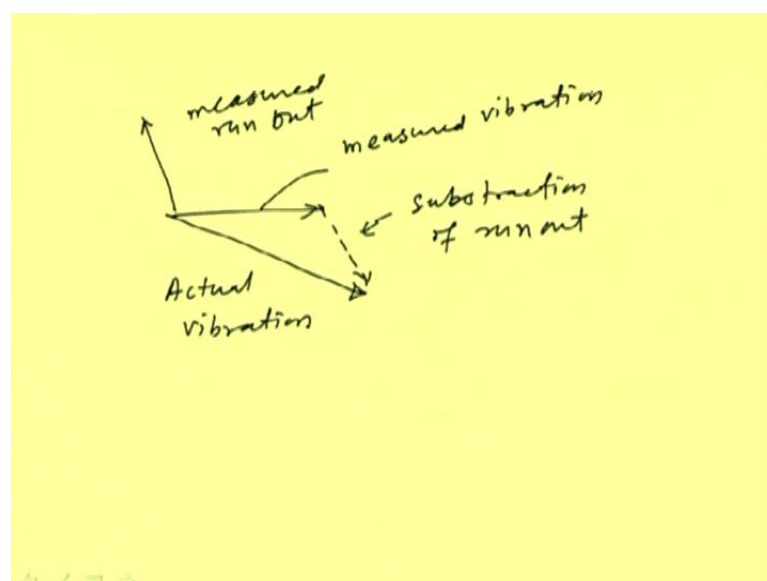 measured
run out
measured vibration
substraction
of run out
Actual
vibration